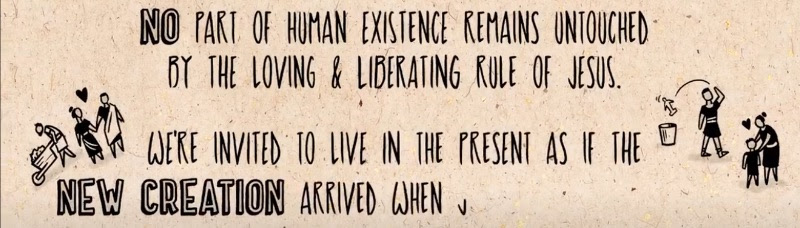 NO PART OF HUMAN EXISTENCE REMAINS UNTOUCHED
BY THE LOVING & LIBERATING RULE OF JESUS.
WE'RE INVITED TO LIVE IN THE PRESENT AS IF THE
NEW CREATION ARRIVED WHEN